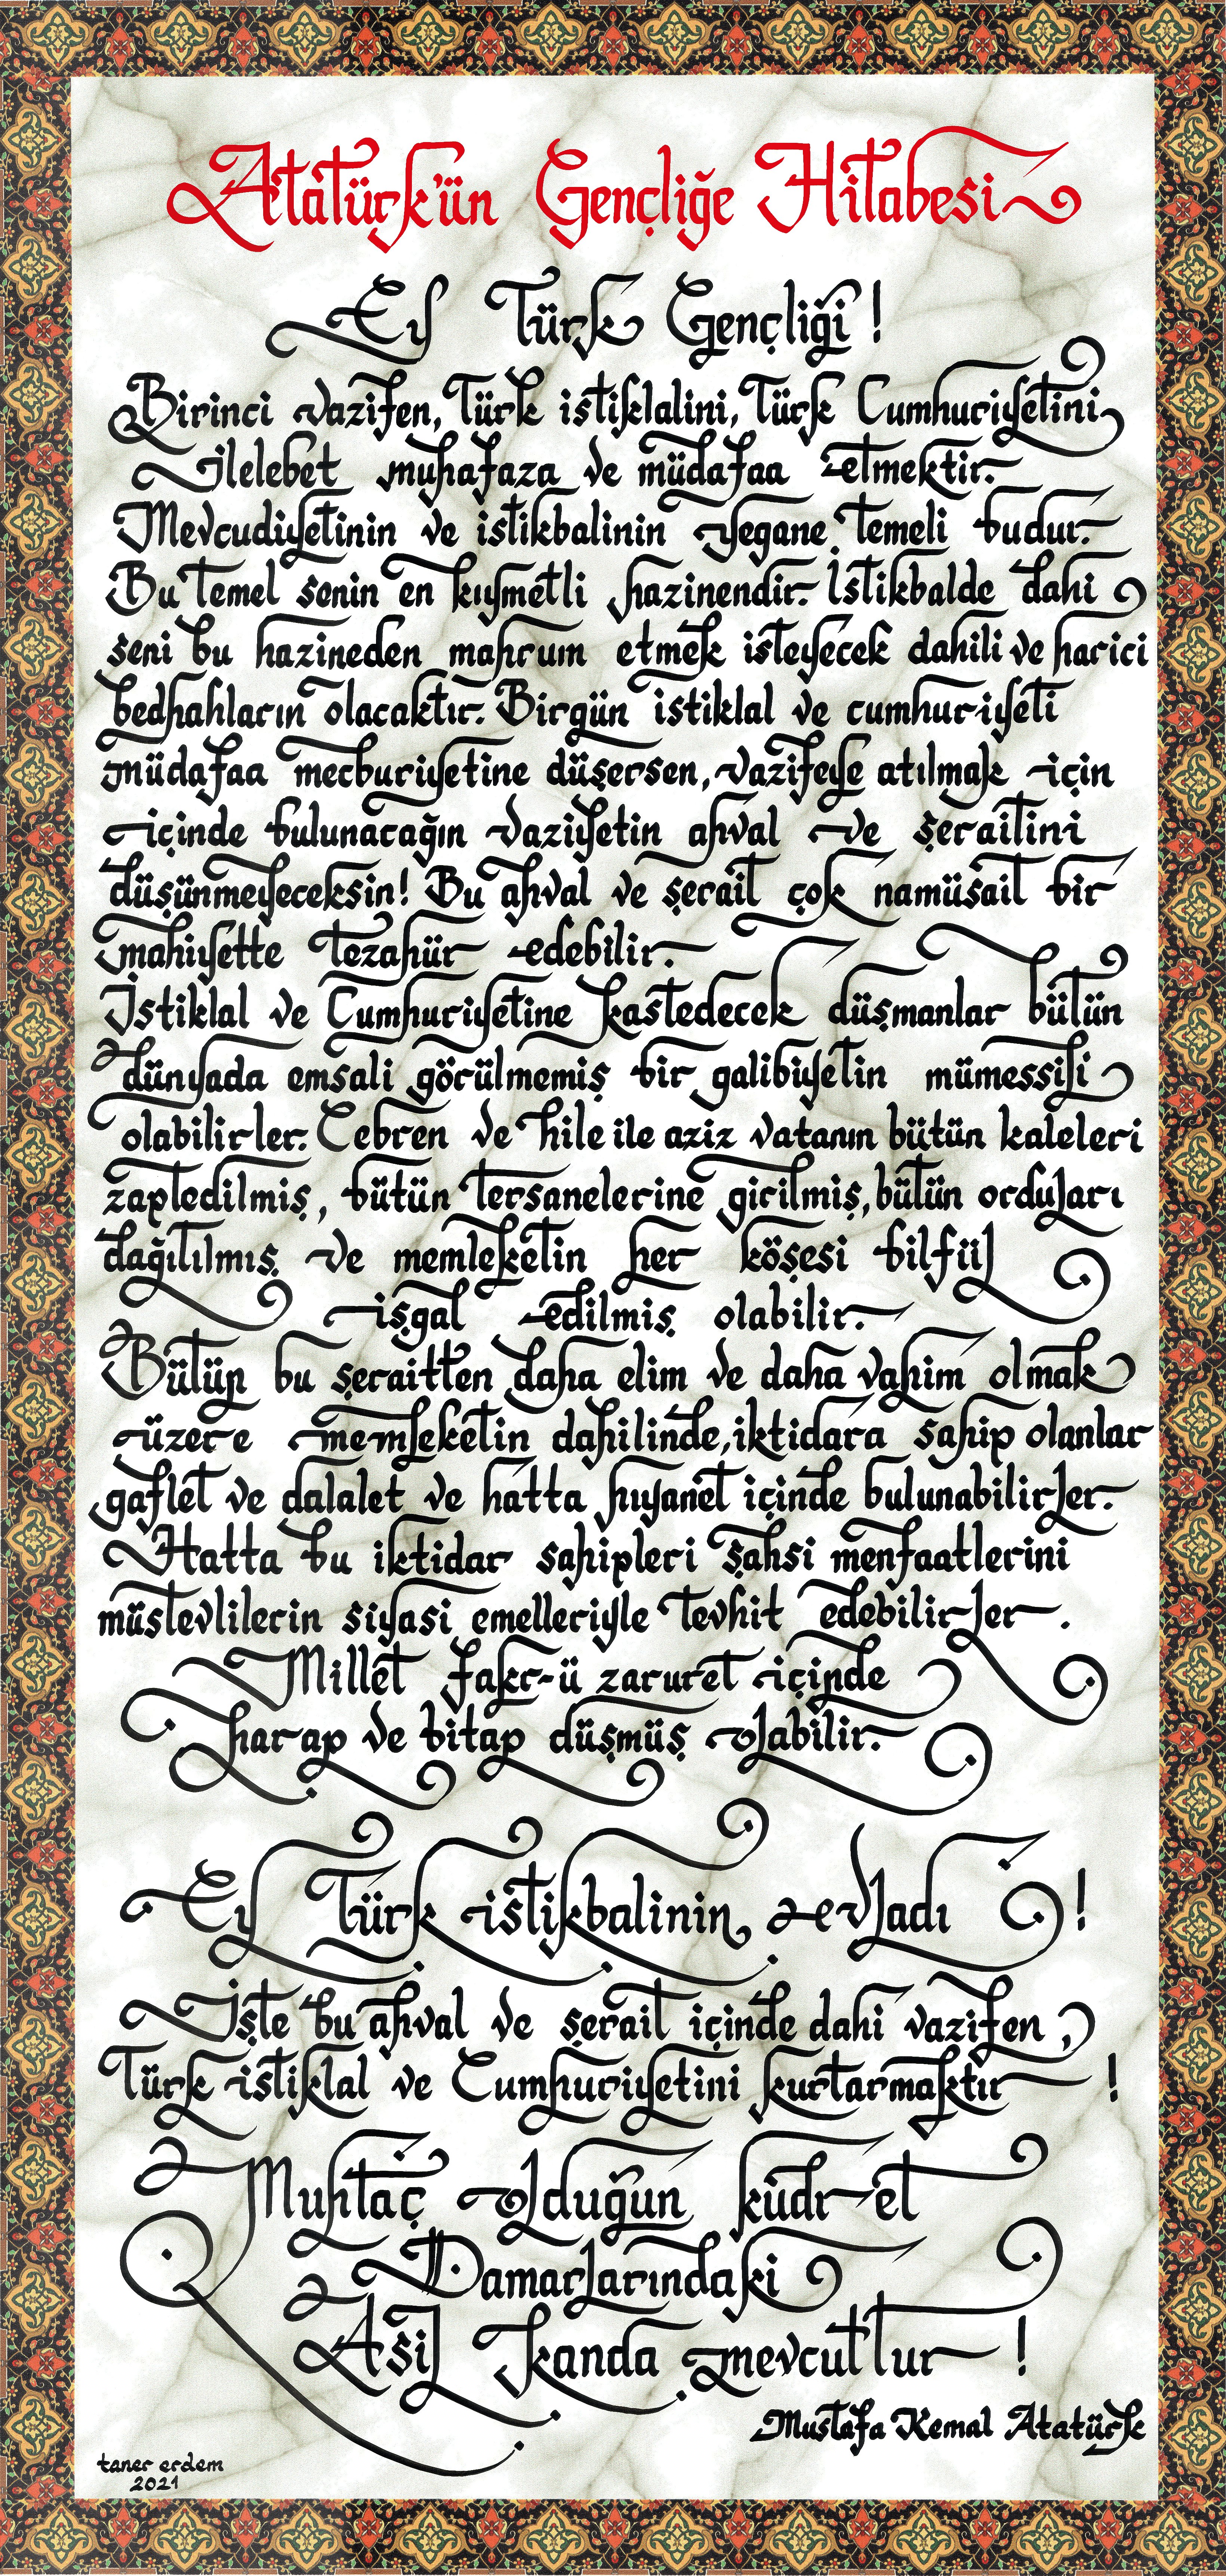 Atatürk'ün Gençliğe Hitabesi
Ey Türk Gençliği!
Birinci vazifen, Türk istiklalini, Türk Cumhuriyetini,
ilelebet muhafaza ve müdafaa etmektir.
Mevcudiyetinin ve istikbalinin yegane temeli budur.
Bu temel senin en kıymetli hazinendir. İstikbalde dahi
seni bu hazineden mahrum etmek isteyecek dahili ve harici
bedhahların olacaktır. Birgün istiklal ve cumhuriyeti
müdafaa mecburiyetine düşersen, vazifeye atılmak için
içinde bulunacağın vaziyetin ahval ve şeraitini
düşünmeyeceksin! Bu ahval ve şerait çok namüsait bir
mahiyette tezahür edebilir.
İstiklal ve Cumhuriyetine kastedecek düşmanlar bütün
dünyada emsali görülmemiş bir galibiyetin mümessili
olabilirler. Cebren ve hile ile aziz vatanın bütün kaleleri
zaptedilmiş, bütün tersanelerine girilmiş, bütün orduları
dağıtılmış ve memleketin her köşesi bilfiil
işgal edilmiş olabilir.
Bütün bu şeraitten daha elim ve daha vahim olmak
üzere memleketin dahilinde, iktidara sahip olanlar
gaflet ve dalalet ve hatta hıyanet içinde bulunabilirler.
Hatta bu iktidar sahipleri şahsi menfaatlerini
müstevlilerin siyasi emelleriyle tevhit edebilirler.
Millet fakr-ü zaruret içinde
harap ve bitap düşmüş olabilir.
Ey Türk istikbalinin evladı!
İşte bu ahval ve şerait içinde dahi vazifen,
Türk istiklal ve Cumhuriyetini kurtarmaktır!
Muhtaç olduğun kudret
Damarlarındaki
Asil kanda mevcuttur!
Mustafa Kemal Atatürk
taner erdem
2021